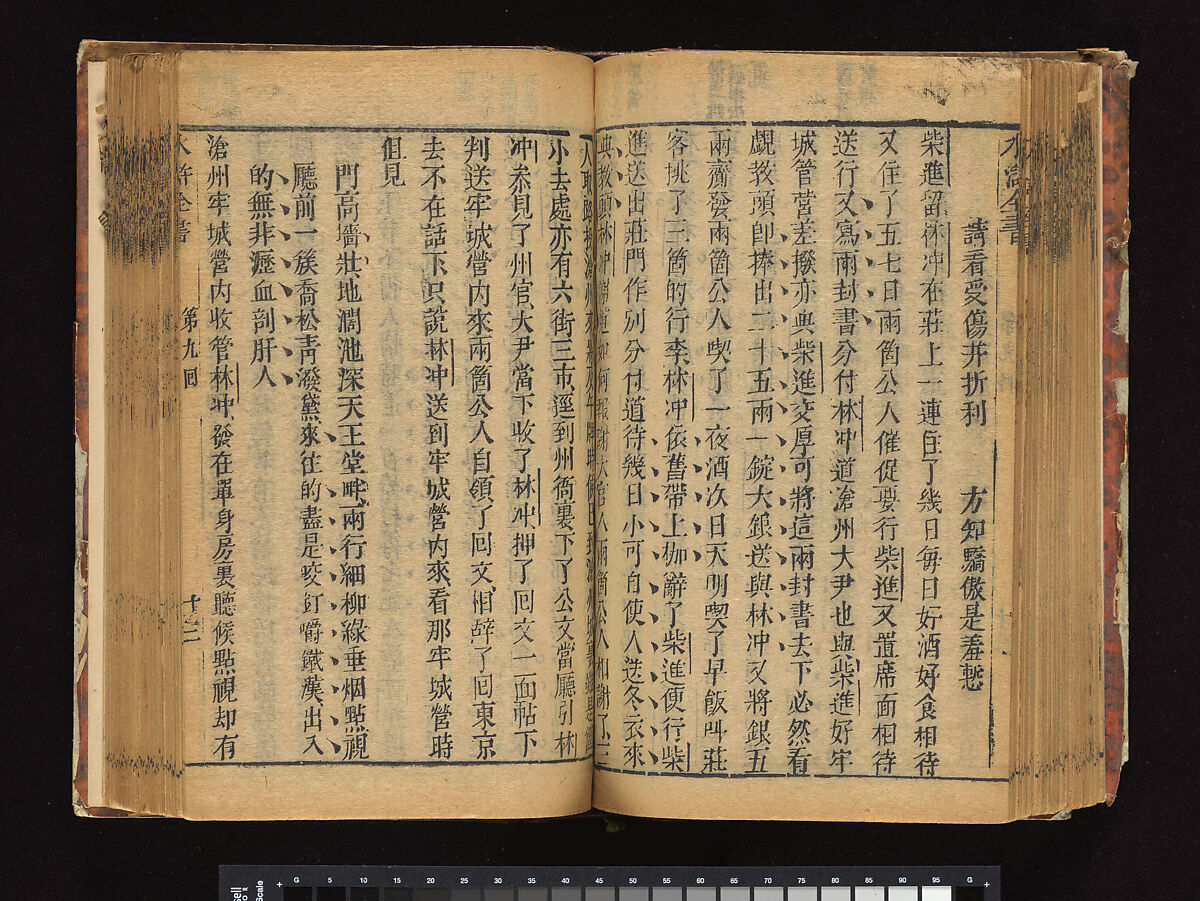 水滸全書
請看受傷并折利　方知驕傲是羞慙
柴進留林冲在莊上一連住了幾日每日好酒好食相待
又住了五七日兩箇公人催促要行柴進又置席面相待
送行又寫兩封書分付林冲道滄州大尹也與柴進好牢
城管營差撥亦與柴進交厚可將這兩封書去下必然看
覷教頭卽捧出二十五兩一錠大銀送與林冲又將銀五
兩齎發兩箇公人喫了一夜酒次日天明喫了早飯叫莊
客挑了三箇的行李林冲依舊帶上枷辭了柴進便行柴
進送出莊門作別分付道待幾日小可自使人送冬衣來
與教頭林冲謝道如何報謝大官人兩箇公人相謝了三
人取路投滄州來
小去處亦有六街三市逕到州衙裏下了公文當廳引林
冲叅見了州官大尹當下收了林冲押了回文一面帖下
判送牢城營內來兩箇公人自領了回文相辭了回東京
去不在話下只說林冲送到牢城營內來看那牢城營時
但見
門高墻壯地濶池深天王堂畔兩行細柳綠垂烟點視
廳前一簇喬松靑潑黛來往的盡是咬釘嚼鐵漢出入
的無非瀝血剖肝人
滄州牢城營內收管林冲發在單身房裏聽候點視却有
水滸全書
第九回
十二